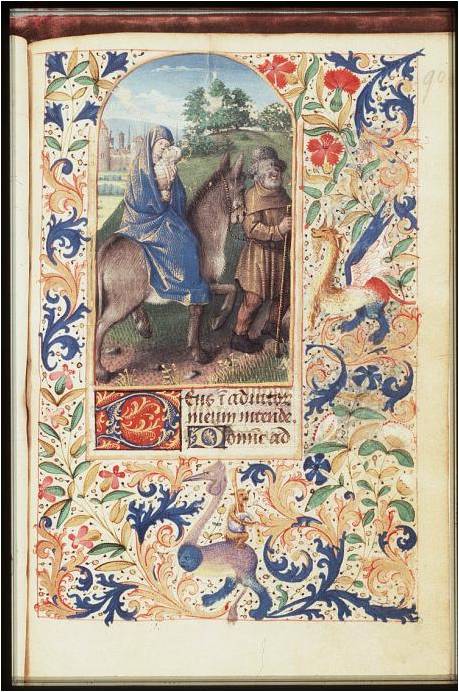 90
Deus ĩ adiutor
meum intende.
Domine ad